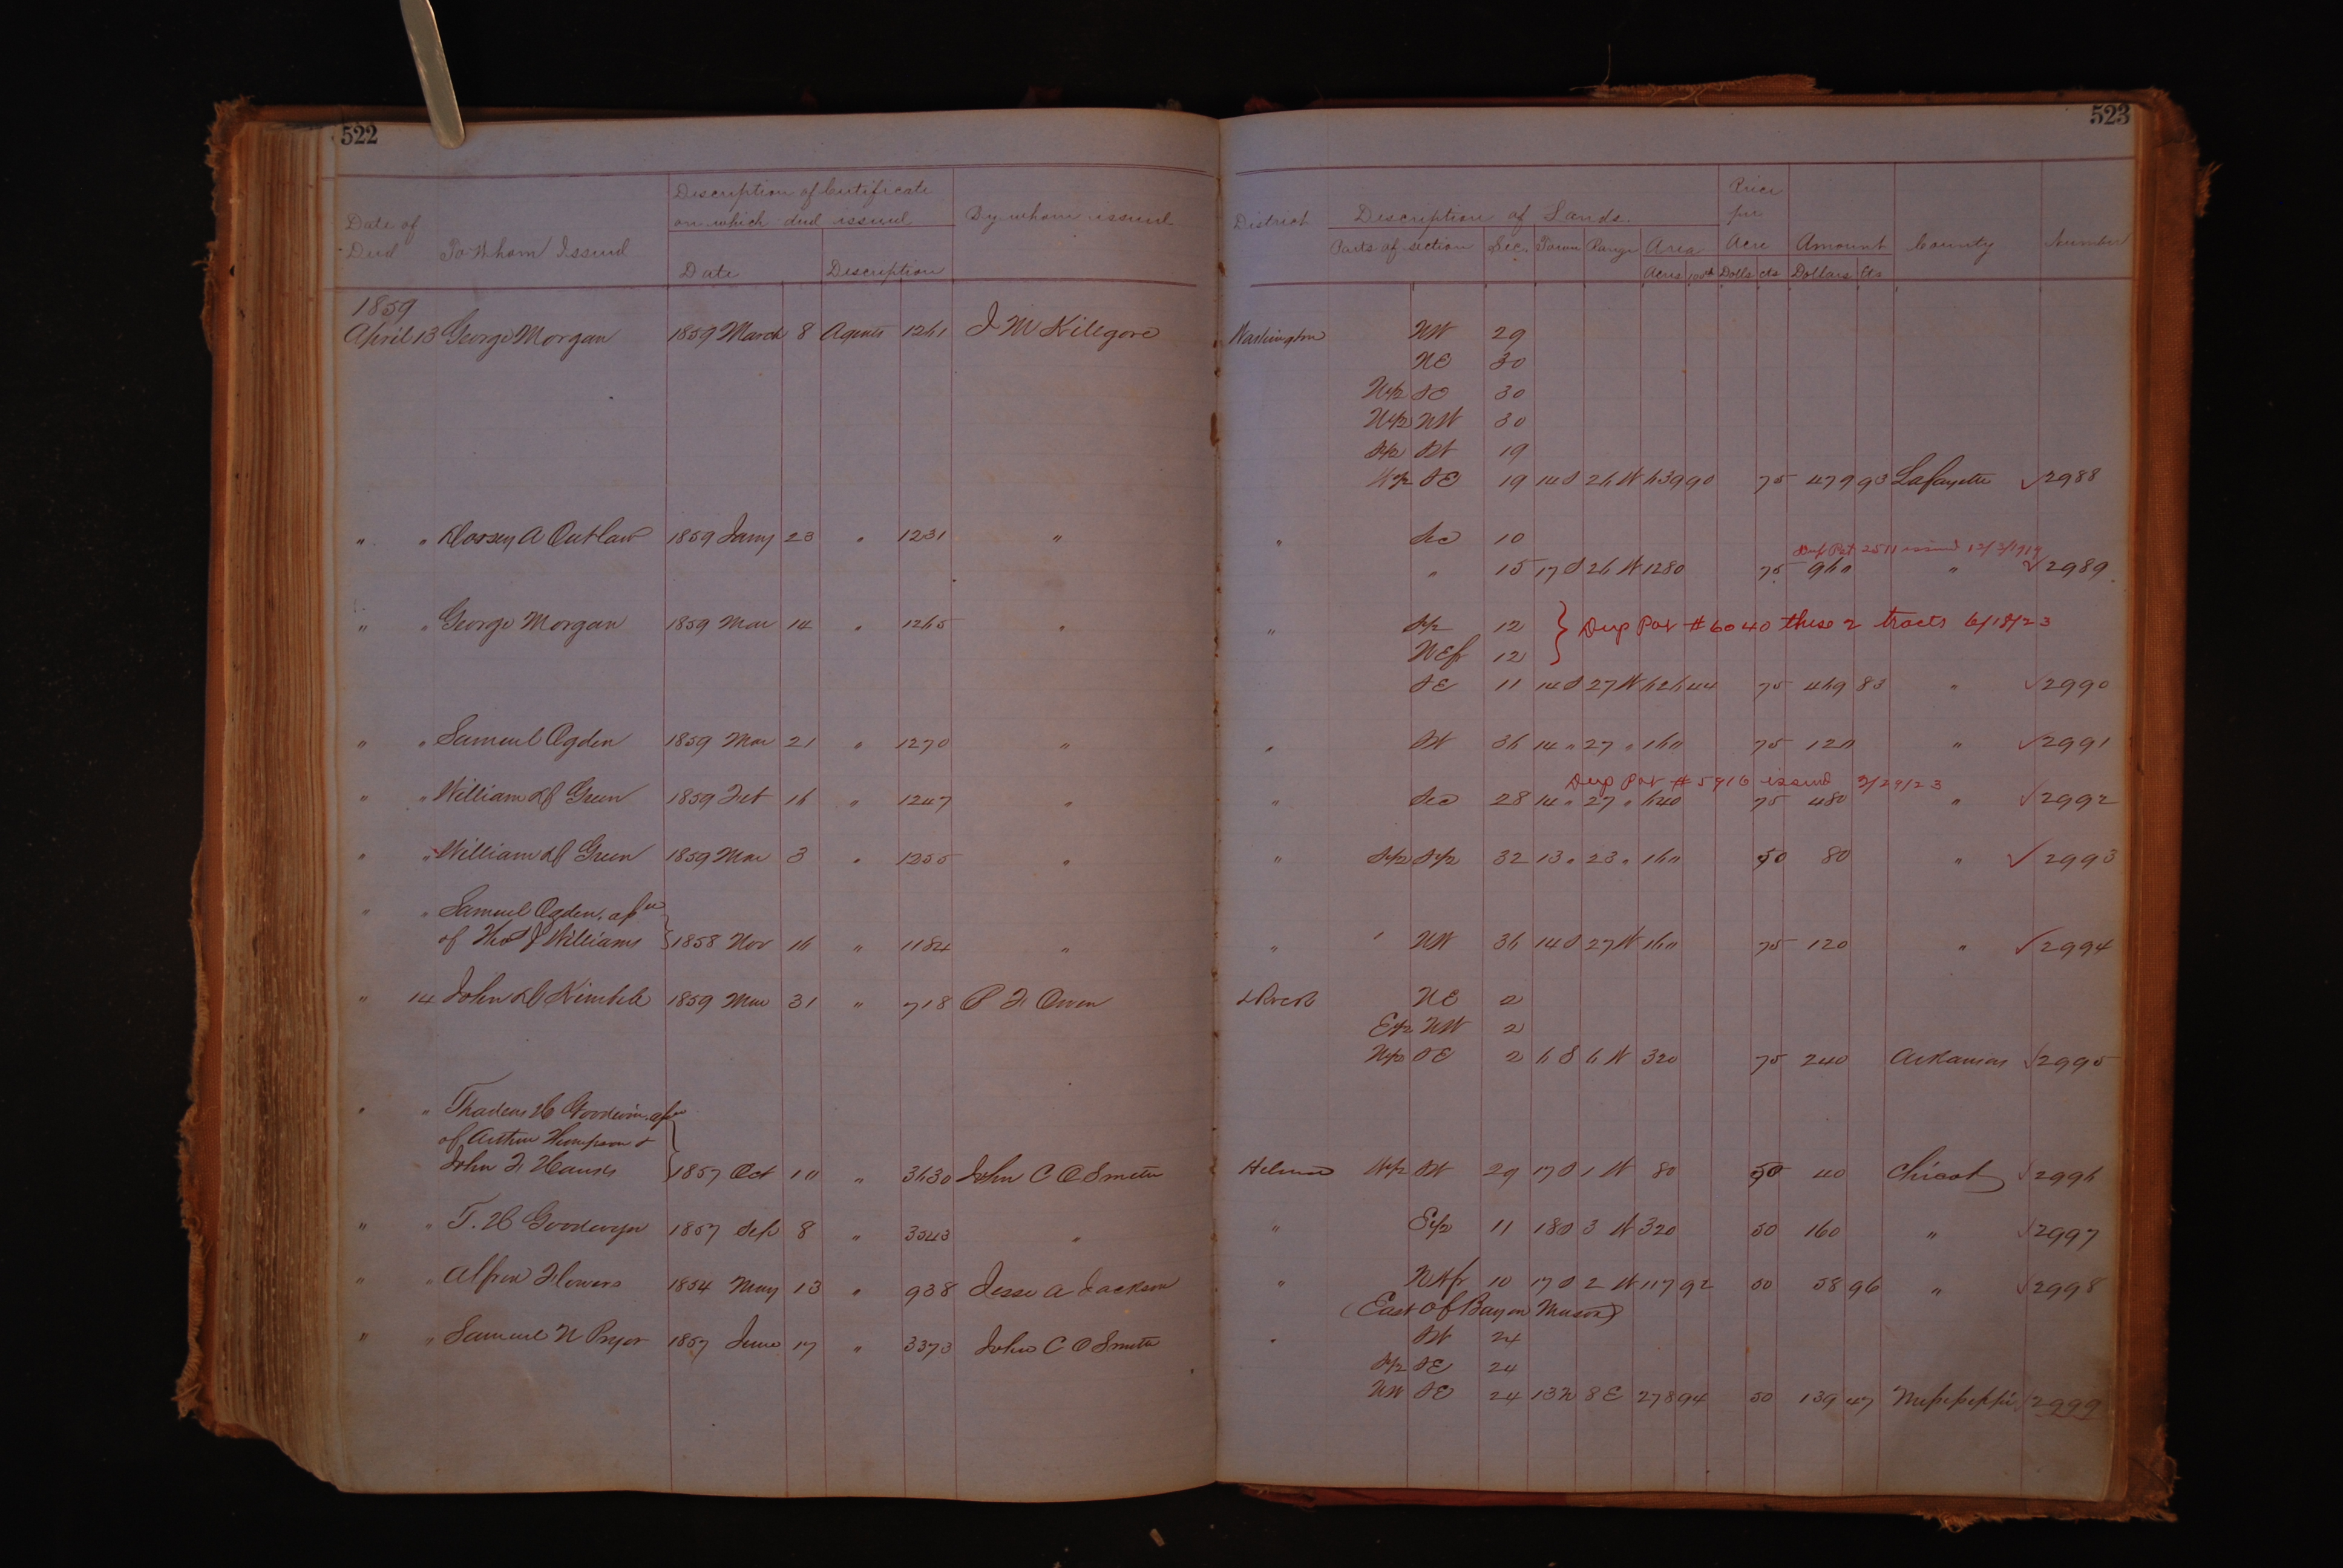 522
523
Date of Deed
To Whom Issued
Description of Certificate on which deed issued
Date
Description
By whom issued
District
Description of Lands.
Parts of section
Sec.
Town
Range
Area
Acres 100th
Price per Acre
Dolls cts
Amount
Dollars Cts
County
Number
1859
April 13 George Morgan 1859 March 8 Agents 1261 J M Kilegore Washington NW 29
NE 30
N1/2 SE 30
N1/2 NW 30
S1/2 SW 19
W1/2 SE 19 14 S 26 W 639 90 75 479 93 Lafayette √ 2988
" " Dorsey A Outlaw 1859 Jany 23 " 1231 " " Sec 10
Dup Pat 2511 issued 12/3/1919
" 15 17 S 26 W 1280 75 960 " √ 2989
" " George Morgan 1859 Mar 14 " 1265 " " S1/2 12 } Dup Pat # 6040 these 2 tracts 6/18/23
NEfr 12
SE 11 14 S 27 W 626 44 75 469 83 " √ 2990
" " Samuel Ogden 1859 Mar 21 " 1270 " " SW 36 14 " 27 " 160 75 120 " √ 2991
Dup Pat # 5916 issued 3/29/23
" " William H Green 1859 Feb 16 " 1247 " " Sec 28 14 " 27 " 640 75 480 " √ 2992
" " William H Green 1859 Mar 3 " 1255 " " S1/2 S1/2 32 13 " 23 " 160 50 80 " √ 2993
" " Samuel Ogden, asee
of Thos J Williams } 1858 Nov 16 " 1184 " " NW 36 14 S 27 W 160 75 120 " √ 2994
" 14 John H Kimbele 1859 Mar 31 " 718 P F Owen LRock NE 2
E1/2 NW 2
N1/2 SE 2 6 S 6 W 320 75 240 Arkansas √ 2995
" " Thadeus H Goodwin, asee
of Arthur Thompson &
John F Hanks } 1857 Oct 10 " 3630 John C O Smith Helena W1/2 SW 29 17 S 1 W 80 50 40 Chicot √ 2996
" " T. H Goodwyn 1857 Sep 8 " 3543 " " E1/2 11 18 S 3 W 320 50 160 " √ 2997
" " Alfred Flowers 1854 May 13 " 938 Jesse A Jackson " NWfr 10 17 S 2 W 117 92 50 58 96 " √ 2998
(East of Bayou Mason)
" " Samuel N Pryor 1857 June 17 " 3373 John C O Smith " SW 24
S1/2 SE 24
NW SE 24 13 N 8 E 278 94 50 139 47 Mississippi √ 2999